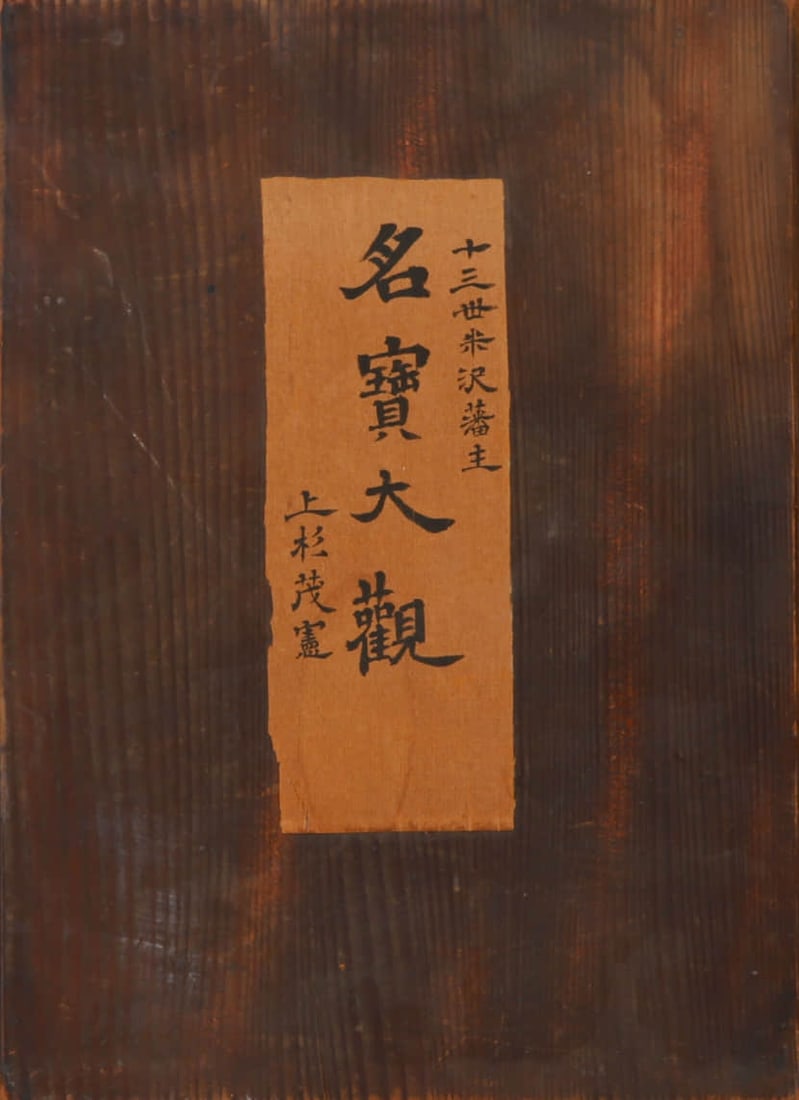 十三世米沢藩主
名寶大觀
上杉茂憲